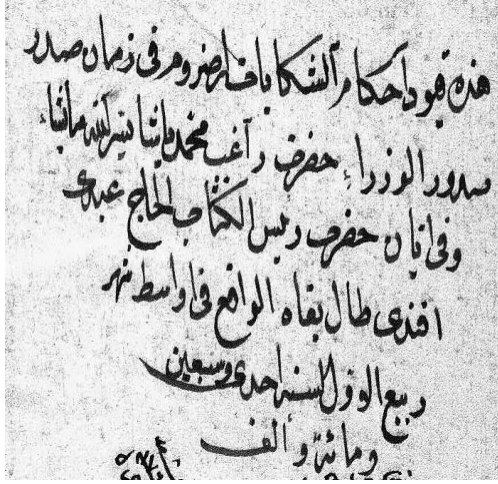 هذه قيود احكام الشكايات ارضروم فى زمان صدر
صدور الوزراء حضرت راغب محمد پاشا يسر الله ما يشاء
وفى اوان حضرت رئيس الكتاب الحاج عبدى
افندى طال بقاه الواقع فى اواسط شهر
ربيع الاول لسنه احدى وسبعين
ومائة والف